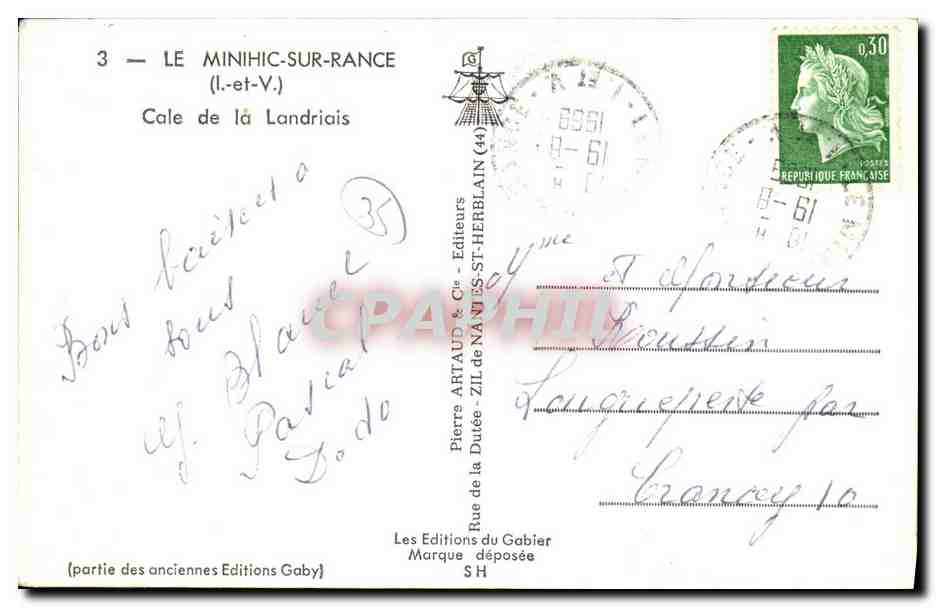 3 — LE MINIHIC-SUR-RANCE
(I.-et-V.)
Cale de la Landriais
Bons baisers a
tous
35
M. Blanc
Pascal
Dodo
(partie des anciennes Editions Gaby)
G
Pierre ARTAUD & Cie - Editeurs
Rue de la Dutée - ZIL de NANTES-ST-HERBLAIN (44)
Les Editions du Gabier
Marque déposée
SH
CPAPHIL
0,30
POSTES
REPUBLIQUE FRANÇAISE
19-8
1969
19-8
Mme et Monsieur
Roussin
Longueperte par
Crancey 10